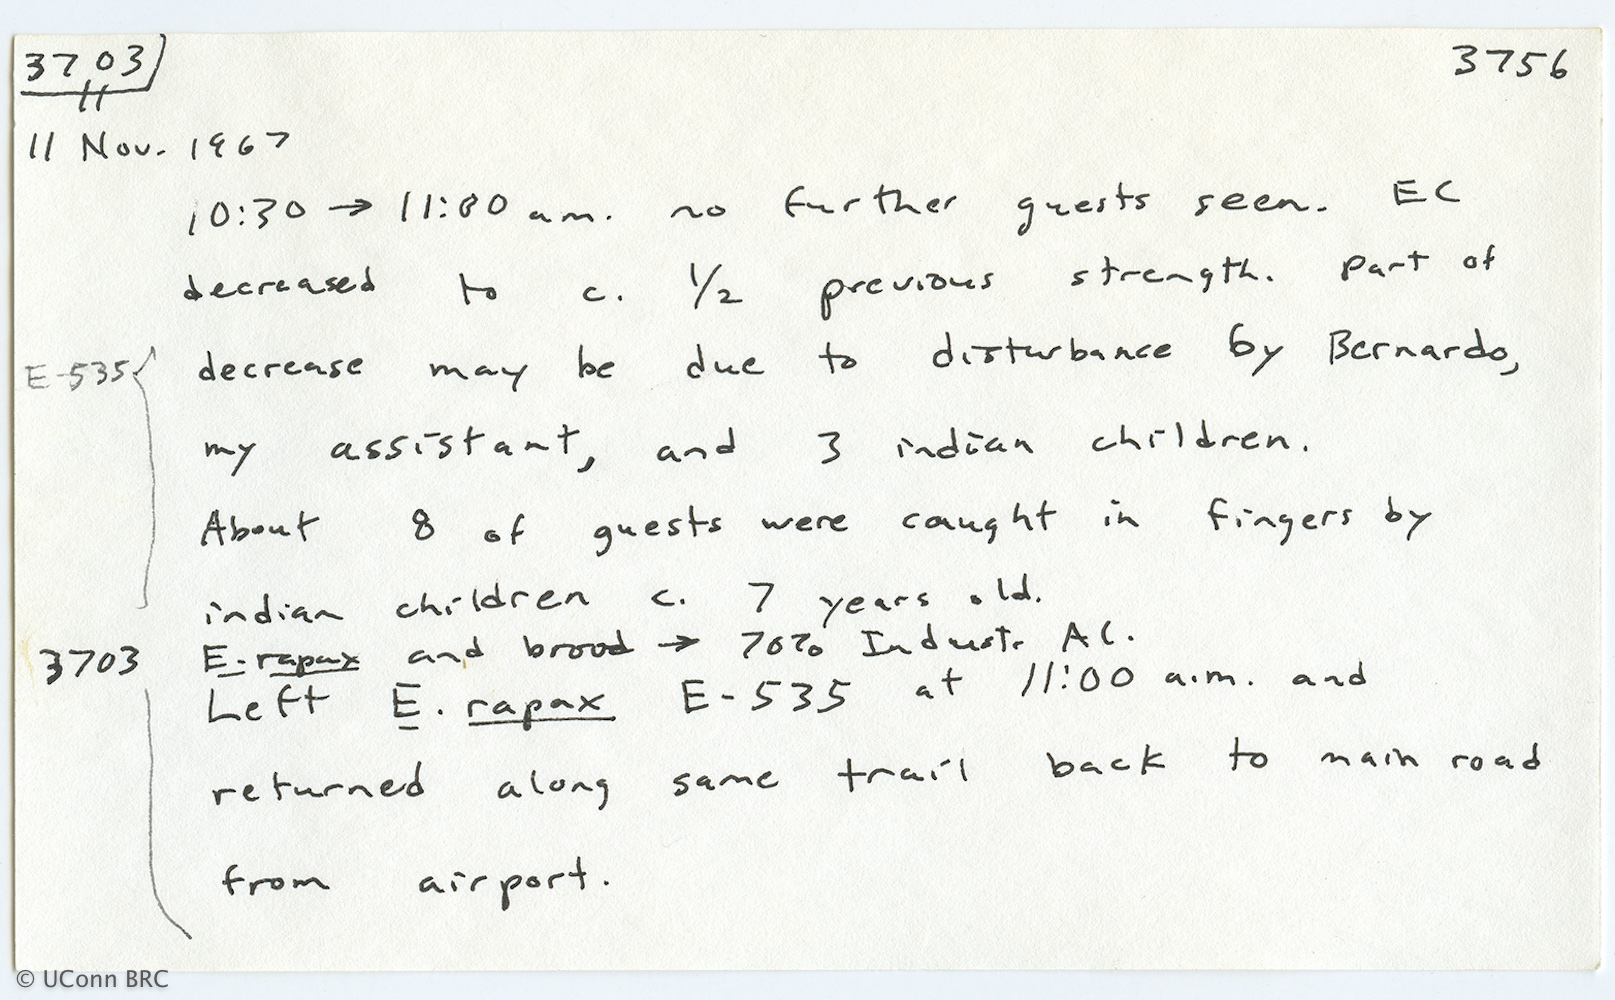 3703 3756
11
11 Nov. 1967
10:30 → 11:00 a.m. no further guests seen. EC
decreased to c. 1/2 previous strength. Part of
E-535 decrease may be due to disturbance by Bernardo,
my assistant, and 3 indian children.
About 8 of guests were caught in fingers by
indian children c. 7 years old.
3703 E. rapax and brood → 70% Industr. AC.
Left E. rapax E-535 at 11:00 a.m. and
returned along same trail back to main road
from airport.
© UConn BRC